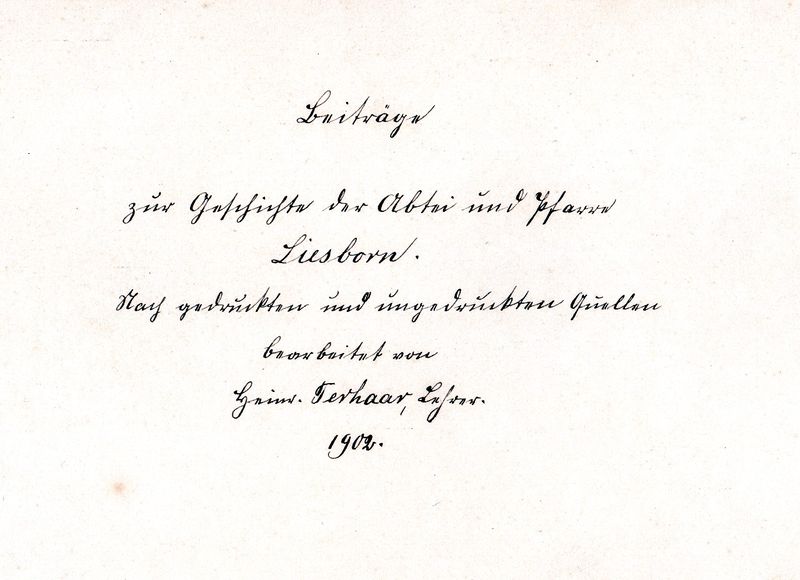 Beiträge
zur Geschichte der Abtei und Pfarre
Liesborn.
Nach gedruckten und ungedruckten Quellen
bearbeitet von
Heinr. Terhaar, Lehrer.
1902.